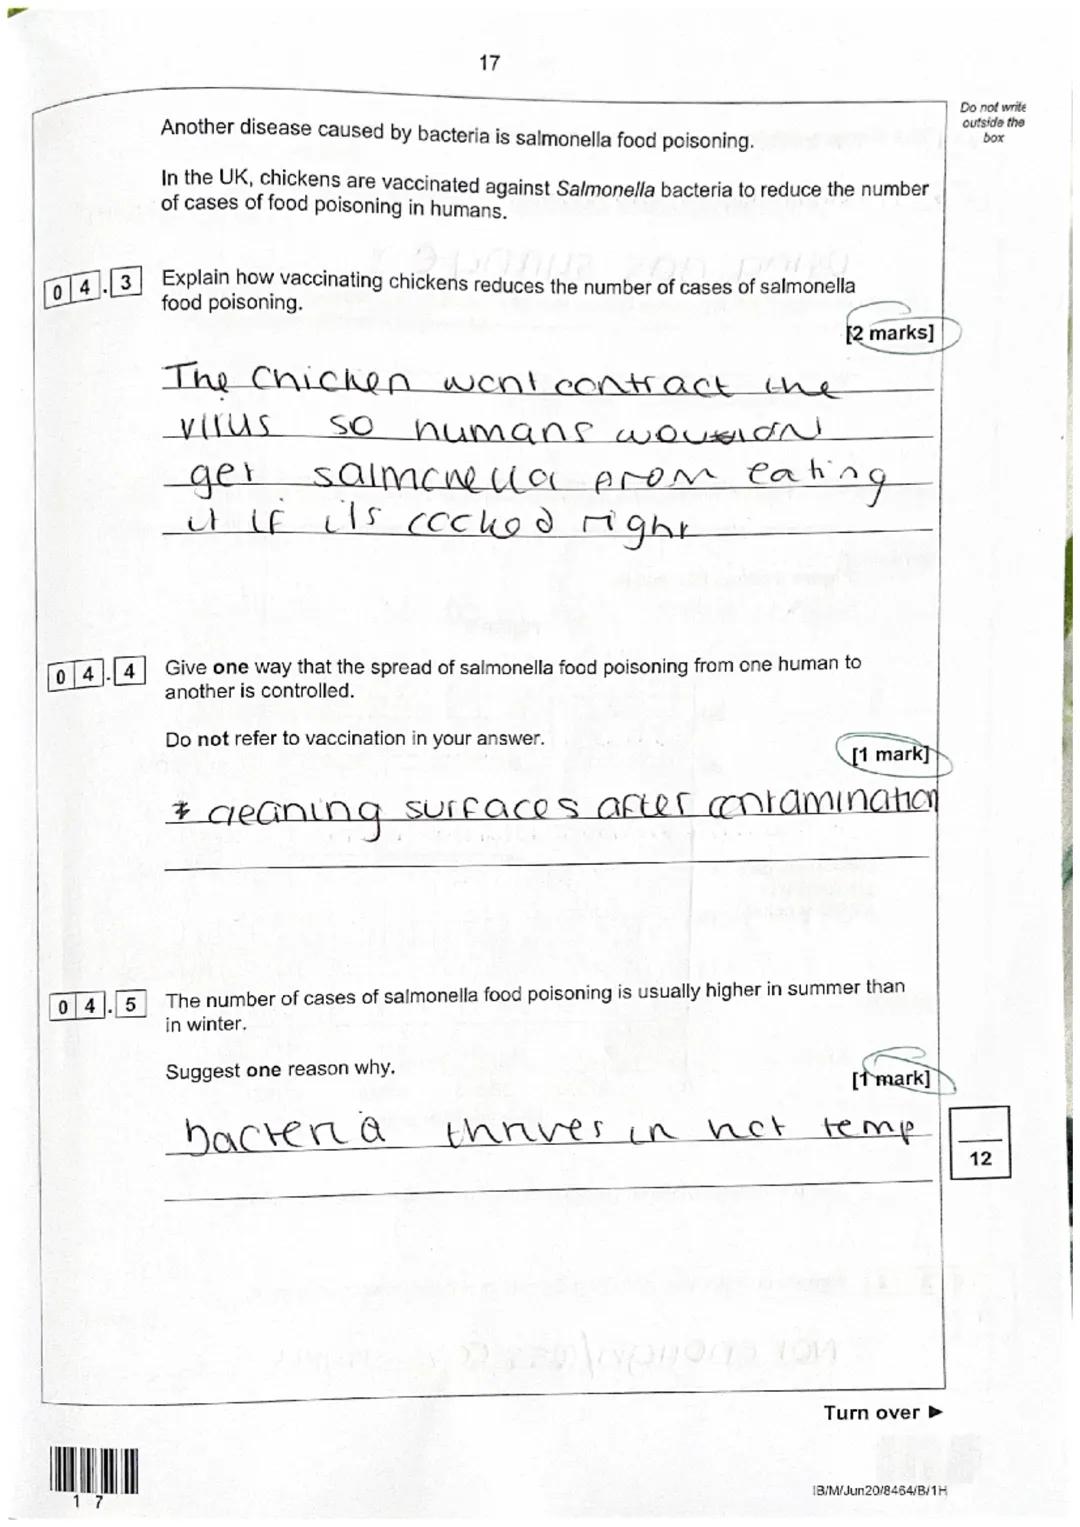 17
Do not write
outside the
box
Another disease caused by bacteria is salmonella food poisoning.
In the UK, chickens are vaccinated against Salmonella bacteria to reduce the number
of cases of food poisoning in humans.
0 4 . 3 Explain how vaccinating chickens reduces the number of cases of salmonella
food poisoning.
[2 marks]
The chicken wont contract the
virus so humans
get salmonella from eating
it if its cooked right
0 4 . 4 Give one way that the spread of salmonella food poisoning from one human to
another is controlled.
Do not refer to vaccination in your answer.
[1 mark]
* cleaning surfaces after contamination
0 4 . 5 The number of cases of salmonella food poisoning is usually higher in summer than
in winter.
Suggest one reason why.
[1 mark]
bacteria thrives in hot temp
12
Turn over ►
1 7
IB/M/Jun20/8464/B/1H